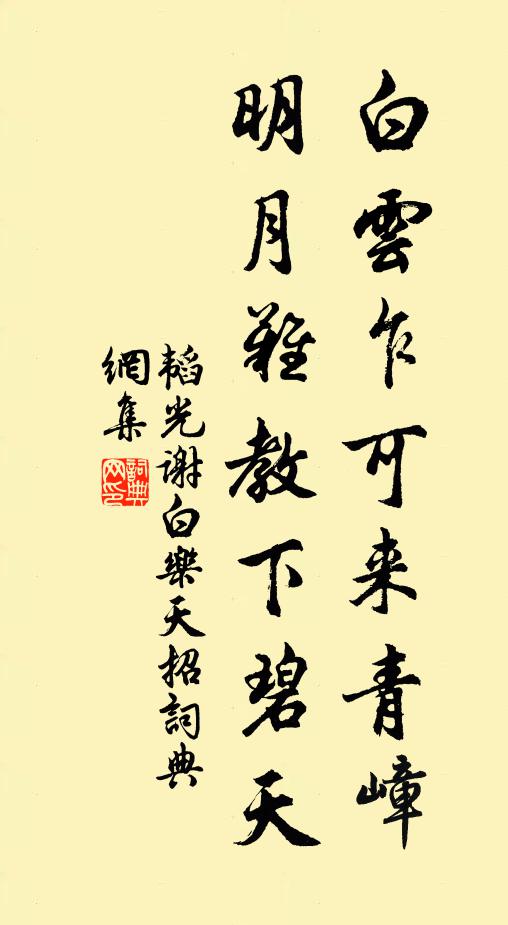 白雲乍可来青嶂
明月難教下碧天
韜光謝白樂天招詞典
網集
詞典
网印